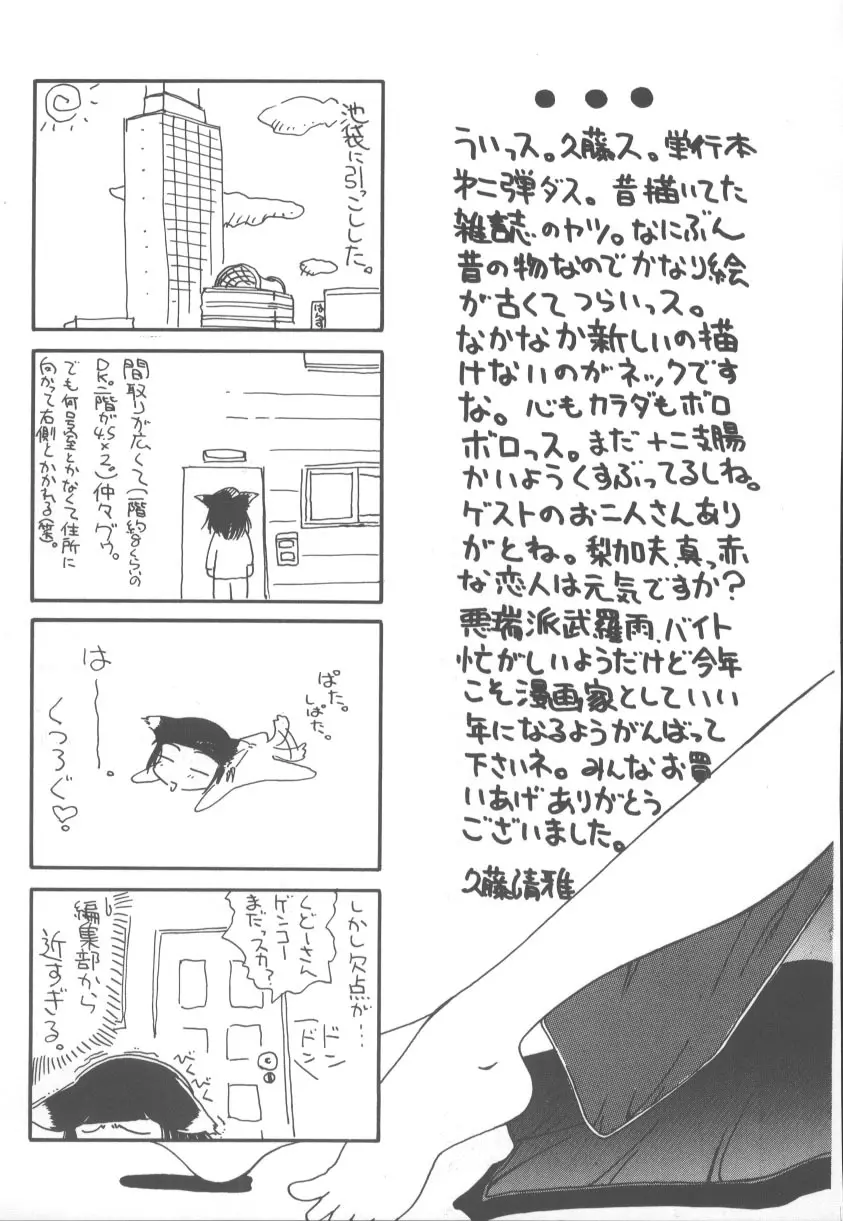 ういっス。久藤ス。単行本
才二弾ダス。昔描いてた
雑誌のヤツ。なにぶん
昔の物なのでかなり絵
が古くてつらいっス。
なかなか新しいの描
けないのがネックです
な。心もカラダもボロ
ボロっス。まだ十二支腸
かいようくすぶってるしね。
ゲストのお二人さんあり
がとね。梨加夫、真っ赤
な恋人は元気ですか?
悪瑞派武羅雨、バイト
忙がしいようだけど今年
こそ漫画家としていい
年になるようがんばって
下さいネ。みんなお買
いあげありがとう
ございました。
久藤清雅
池袋に引っこしした。
はんず
間取りが広くて(一階約8くらいの
DK。二階が4.5×2。)仲々グゥ。
でも何号室とかなくて住所に
向かって右側とかかれる(笑)。
はーー。
くつろぐ♡。
ぱた。
しぱた。
しかし欠点が…
くどーさん
ゲンコー
まだっスカ?
ドン
ドン
びくびく
編集部から
近すぎる。